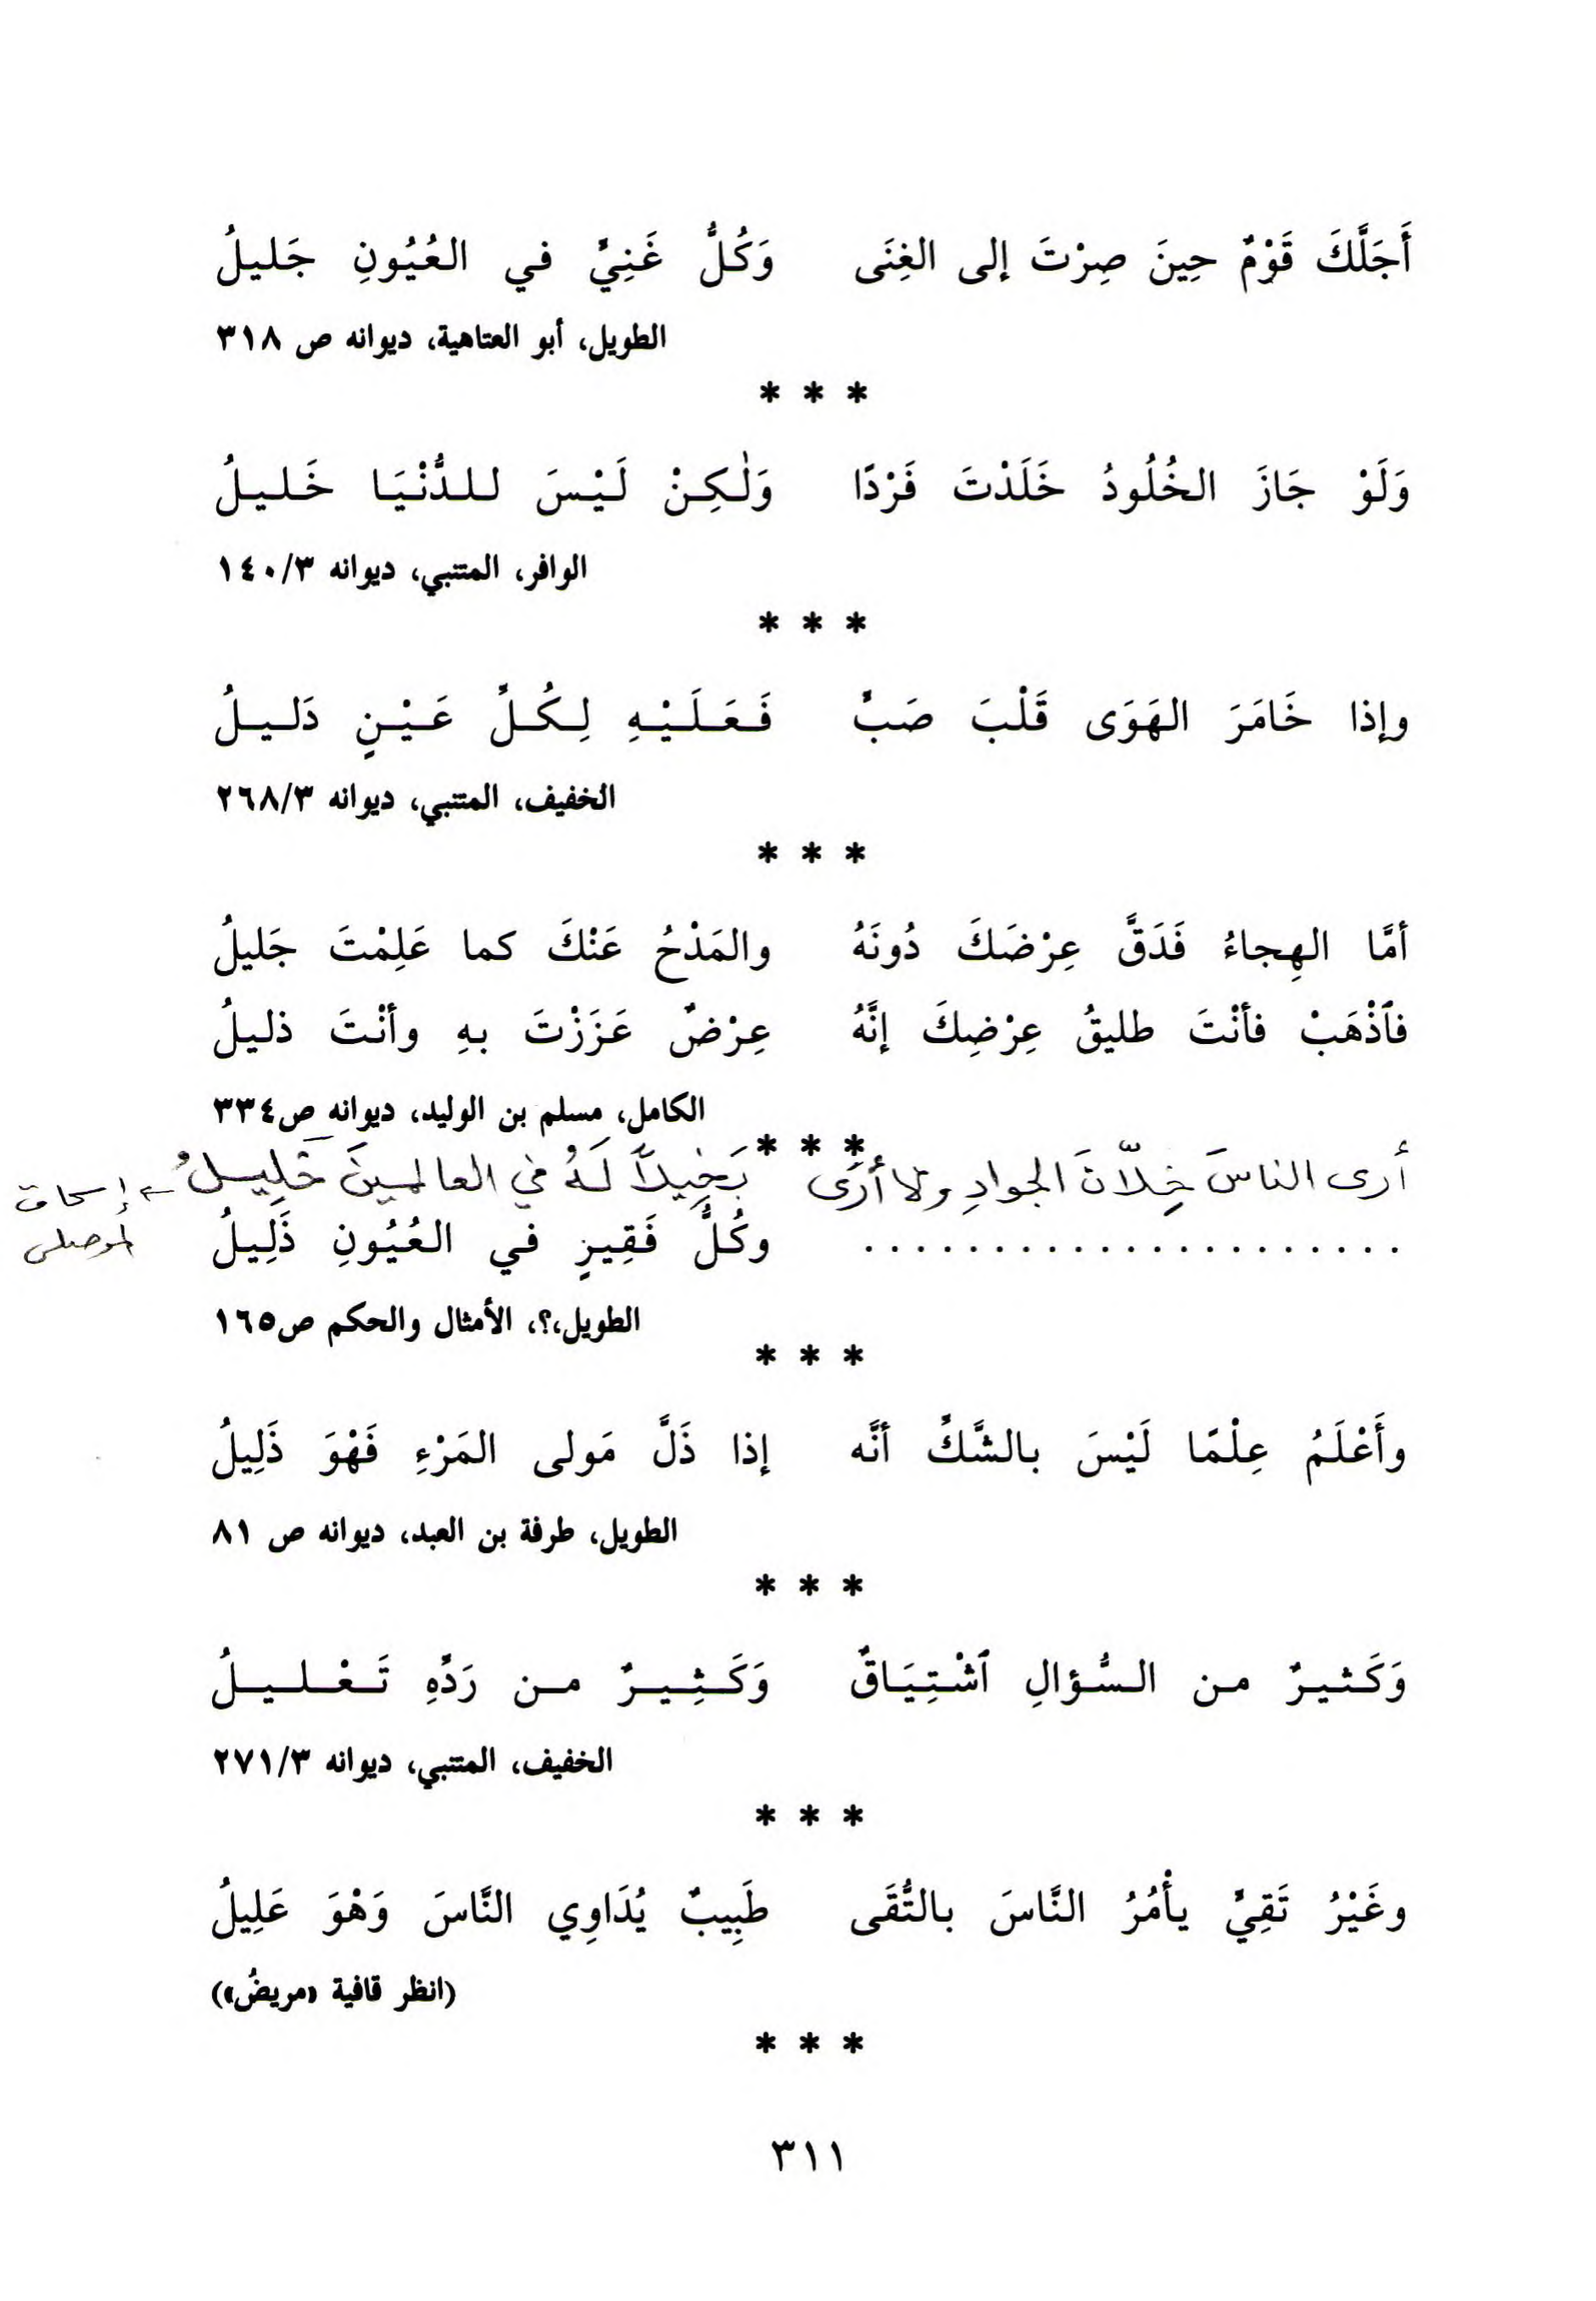 أَجَلَّكَ قَوْمٌ حِينَ صِرْتَ إلى الغِنَى وَكُلُّ غَنِيٍّ في العُيُونِ جَليلُ
الطويل، أبو العتاهية، ديوانه ص ٣١٨
* * *
وَلَوْ جَازَ الخُلُودُ خَلَدْتَ فَرْدًا وَلٰكِنْ لَيْسَ للدُّنْيَا خَليلُ
الوافر، المتنبي، ديوانه ١٤٠/٣
* * *
وإذا خَامَرَ الهَوَى قَلْبَ صَبٍّ فَعَلَيْهِ لِكُلِّ عَيْنٍ دَليلُ
الخفيف، المتنبي، ديوانه ٢٦٨/٣
* * *
أمَّا الهِجاءُ فَدَقَّ عِرْضَكَ دُونَهُ والمَدْحُ عَنْكَ كما عَلِمْتَ جَليلُ
فٱذْهَبْ فأنْتَ طليقُ عِرْضِكَ إنَّهُ عِرْضٌ عَزَزْتَ بهِ وأنْتَ ذليلُ
الكامل، مسلم بن الوليد، ديوانه ص٣٣٤
* * *
أرى الناسَ خِلّانَ الجوادِ ولا أرَى بَخِيلاً لَهُ في العالمينَ خَلِيلُ
← إسحاق الموصلي
. . . . . . . . . . . . . . . . . . . . . وكُلُّ فَقِيرٍ في العُيُونِ ذَلِيلُ
الطويل،؟، الأمثال والحكم ص١٦٥
* * *
وأَعْلَمُ عِلْمًا لَيْسَ بالشَّكِّ أنَّه إذا ذَلَّ مَولى المَرْءِ فَهْوَ ذَلِيلُ
الطويل، طرفة بن العبد، ديوانه ص ٨١
* * *
وَكَثيرٌ من السُّؤالِ ٱشْتِيَاقٌ وَكَثِيرٌ من رَدِّهِ تَعْليلُ
الخفيف، المتنبي، ديوانه ٢٧١/٣
* * *
وغَيْرُ تَقِيٍّ يأْمُرُ النَّاسَ بالتُّقَى طَبِيبٌ يُدَاوِي النَّاسَ وَهْوَ عَلِيلُ
(انظر قافية «مريضُ»)
* * *
٣١١